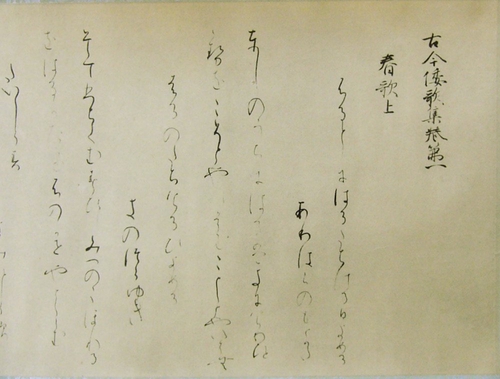 古今倭歌集巻第一
春歌上
ふるとしにはるたちける日よめる
ありはらのもとかた
としのうちにはるはきにけりひとゝせを
こそとやいはむことしとやいはむ
はるのたちけるひよめる
きのつらゆき
そてひちてむすひしみつのこほれる
をはるたつけふのかせやとくらむ
たいしらす